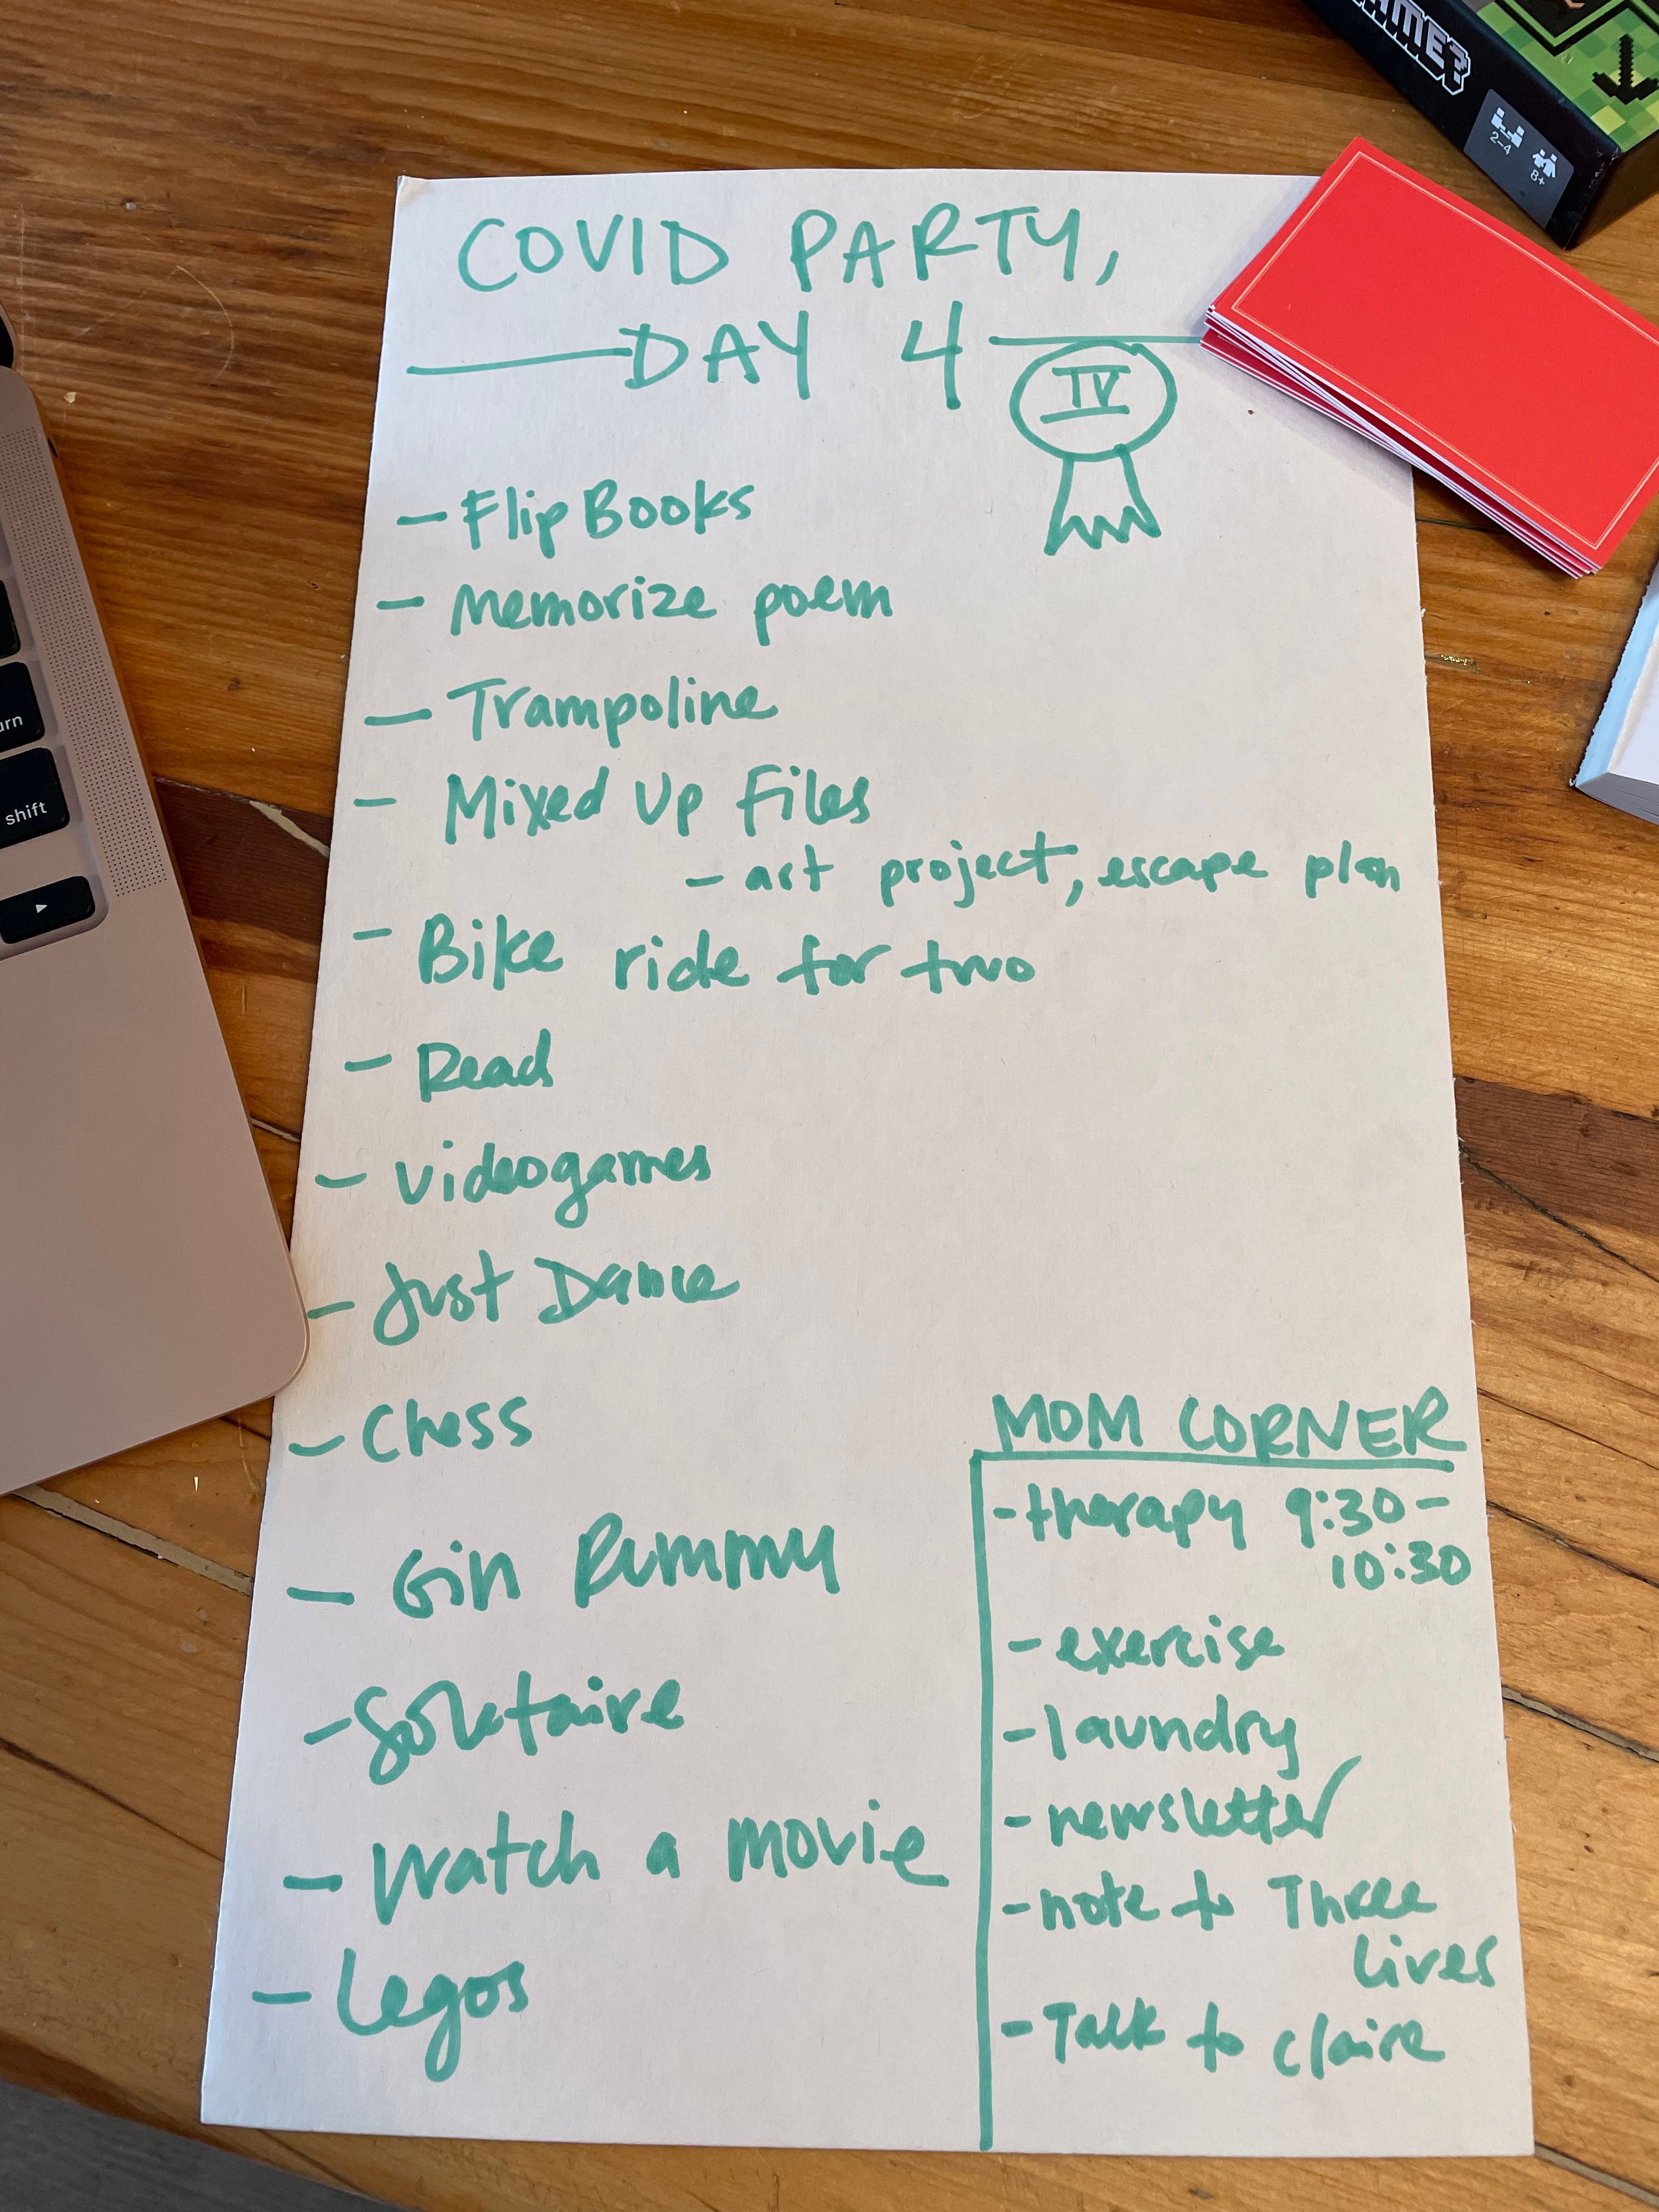 AME?
2-4
8+
COVID PARTY,
DAY 4
IV
- Flip Books
- Memorize poem
- Trampoline
- Mixed Up Files
- art project, escape plan
- Bike ride for two
- Read
- videogames
- Just Dance
- Chess
- Gin Rummy
- Solitaire
- Watch a movie
- Legos
MOM CORNER
- therapy 9:30 -
10:30
- exercise
- laundry
- newsletter ✓
- note to Three
Lives
- Talk to Claire
urn
shift